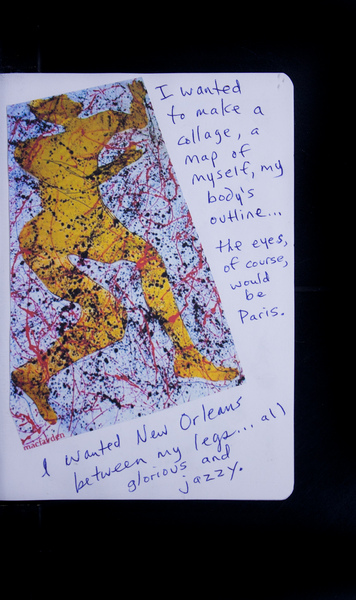 I wanted
to make a
collage, a
map of
myself, my
body's
outline...
the eyes,
of course,
would
be
Paris.
macfadden
I wanted New Orleans
between my legs... all
glorious and
jazzy.